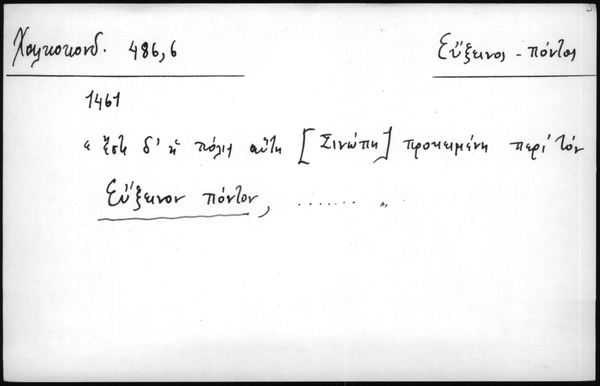 Χαλκοκονδ. 486,6 Εὔξεινος - πόντος
1461
« ἔστι δ' ἡ πόλις αὕτη [Σινώπη] προκειμένη περὶ τὸν
Εὔξεινον πόντον, ....... »